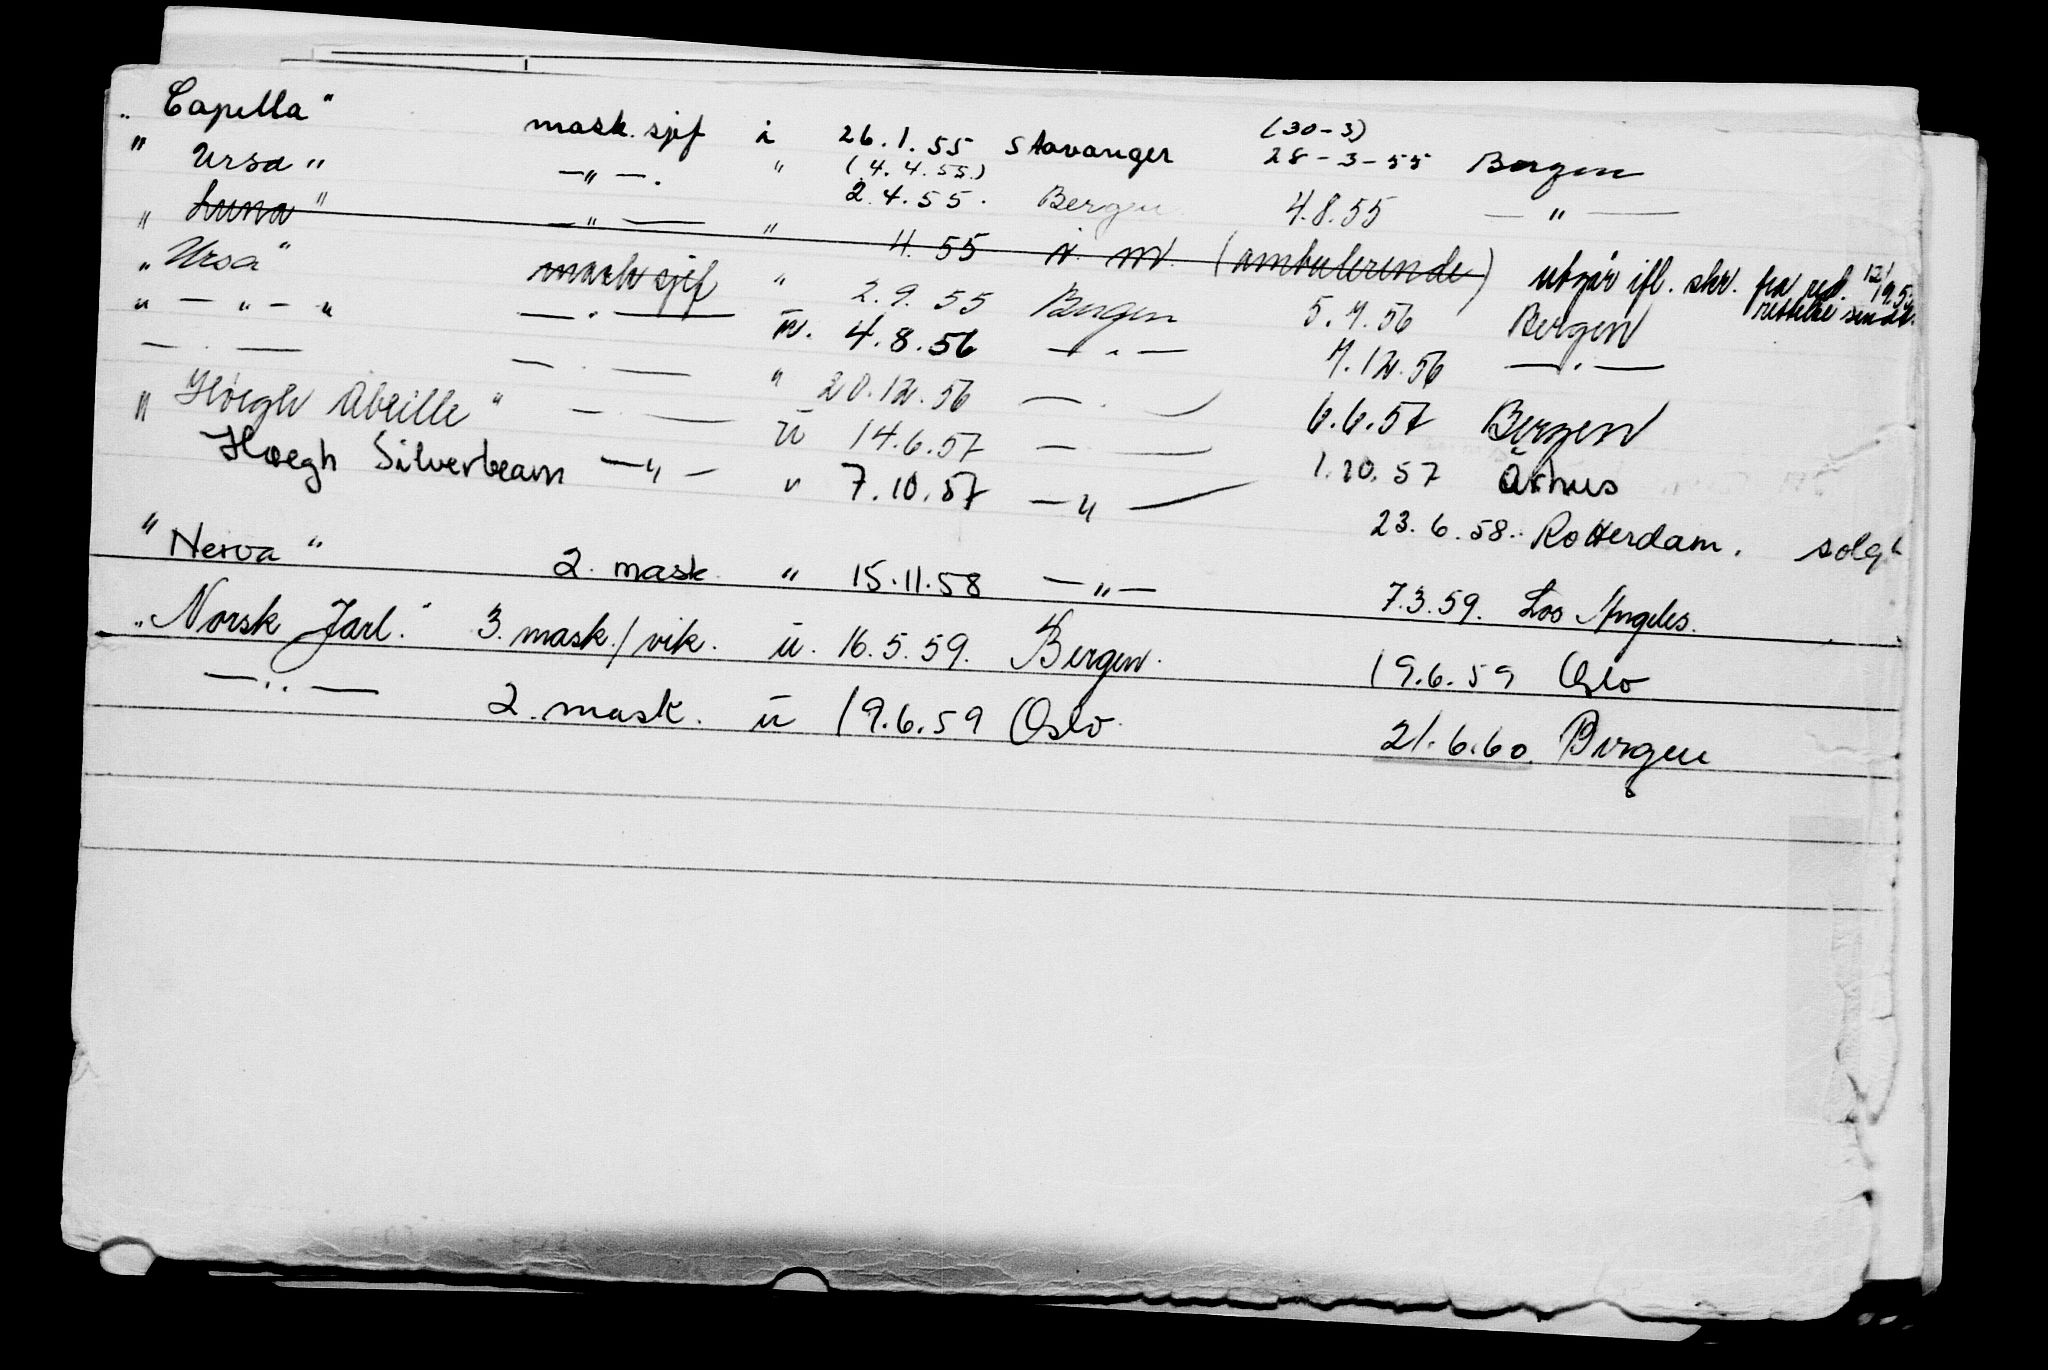 „ Capella" mask. sjef i 26.1.55 Stavanger (30-3) 28-3-55 Bergen
" Ursa " —"—. " (4.4.55.) 2.4.55. Bergen 4.8.55 — " —
" Luna " — " — " 4.55 i. m. (ambulerende) utgår ifl. skr. fra red. rettelse sendt.
„ Ursa " mask sjef " 2.9.55 Bergen 5.7.56 Bergen
" — " — " — . — m. 4.8.56 — . — 7.12.56 — . —
— . — — . — " 20.12.56 — . — 6.6.57 Bergen
" Höegh Abeille " — . — ü 14.6.57 — . — 1.10.57 Århus
Høegh Silverbeam — " — " 7.10.57 — " — 23.6.58. Rotterdam. solgt
" Nerva " 2. mask. " 15.11.58 — " — 7.3.59. Los Angeles.
„ Norsk Jarl." 3. mask./vik. ü. 16.5.59. Bergen. 19.6.59 Oslo
— . . — 2. mask. ü 19.6.59 Oslo. 21.6.60. Bergen